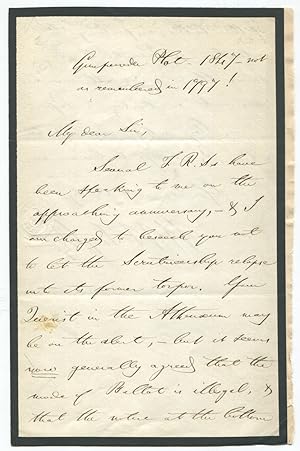 Gunpowder Plot 1847 - not
as remembered in 1797!
My dear Sir,
Several F.R.S.s have
been speaking to me on the
approaching anniversary, - & I
am charged to beseech you not
to let the Scrutineership relapse
into its former torpor. Your
Querist in the Athenæum may
be on the alert, - but it seems
now generally agreed that the
mode of Ballot is illegal, &
that the notice at the bottom